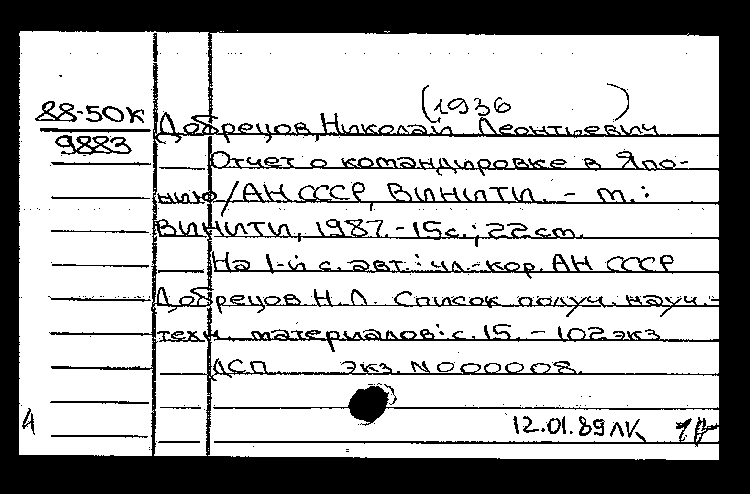 (1936 )
88-50К
9883
Добрецов, Николай Леонтьевич
Отчет о командировке в Япо-
нию / АН СССР, ВИНИТИ. - М.:
ВИНИТИ, 1987. - 15 с.; 22 cm.
На 1-й с. авт.: чл.-кор. АН СССР
Добрецов Н.Л. Список получ. науч.-
техн. материалов: с. 15. - 102 экз
ДСП экз. N 000008.
12.01.89 ЛК